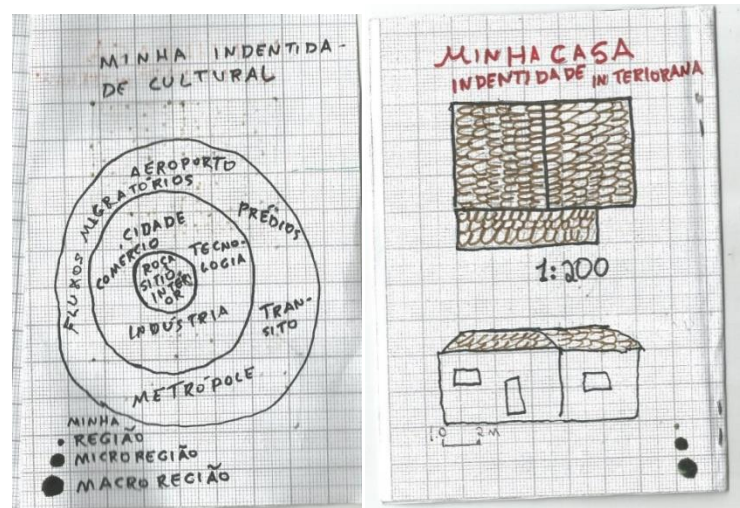 MINHA INDENTIDA-
DE CULTURAL
AEROPORTO
FLUXOS MIGRATÓRIOS
PRÉDIOS
CIDADE
COMÉRCIO
TECNO-
LOGIA
ROÇA
SITIO,
INTERI
OR
INDÚSTRIA
TRAN-
SITO
METRÓPOLE
MINHA
REGIÃO
MICROREGIÃO
MACRO REGIÃO
MINHA CASA
INDENTIDADE INTERIORANA
1:200
1.0 2 M